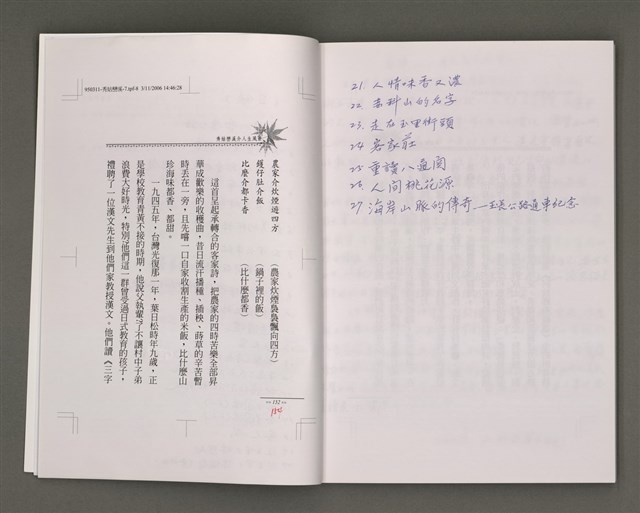 950311-秀姑戀溪-7.tpf-8 3/11/2006 14:46:28
秀姑戀溪介人生風景
農家介炊煙遊四方 （農家炊煙裊裊飄向四方）
鑊仔肚介飯 （鍋子裡的飯）
比麼介都卡香 （比什麼都香）
這首呈起承轉合的客家詩，把農家的四時苦樂全部昇
華成歡樂的收穫曲，昔日流汗播種、插秧、蒔草的辛苦暫
時丟在一旁，且先嚐一口自家收割生產的米飯，比什麼山
珍海味都香、都甜。
一九四五年，台灣光復那一年，葉日松時年九歲，正
是學校教育青黃不接的時期，他說父執輩為了不讓村中子弟
浪費大好時光，特別他們這一群曾受過日式教育的孩子，
禮聘了一位漢文先生到他們家教授漢文。他們讀《三字
152
184
21. 人情味香又濃
22. 赤科山的名字
23. 走在玉里街頭
24. 客家莊
25. 重讀八通關
26. 人間桃花源
27. 海岸山脈的傳奇—玉長公路通車紀念